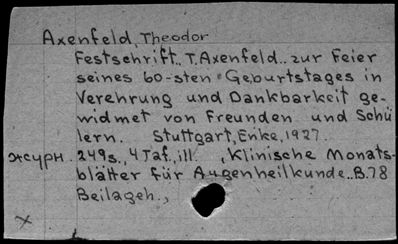 Axenfeld, Theodor
Festschrift.. T. Axenfeld.. zur Feier
seines 60-sten Geburtstages in
Verehrung und Dankbarkeit ge-
widmet von Freunden und Schü
lern. Stuttgart, Enke, 1927.
журн. 249s., 4 Taf., ill. , Klinische Monats-
blätter für Augenheilkunde.. B.78
Beilageh.,
x